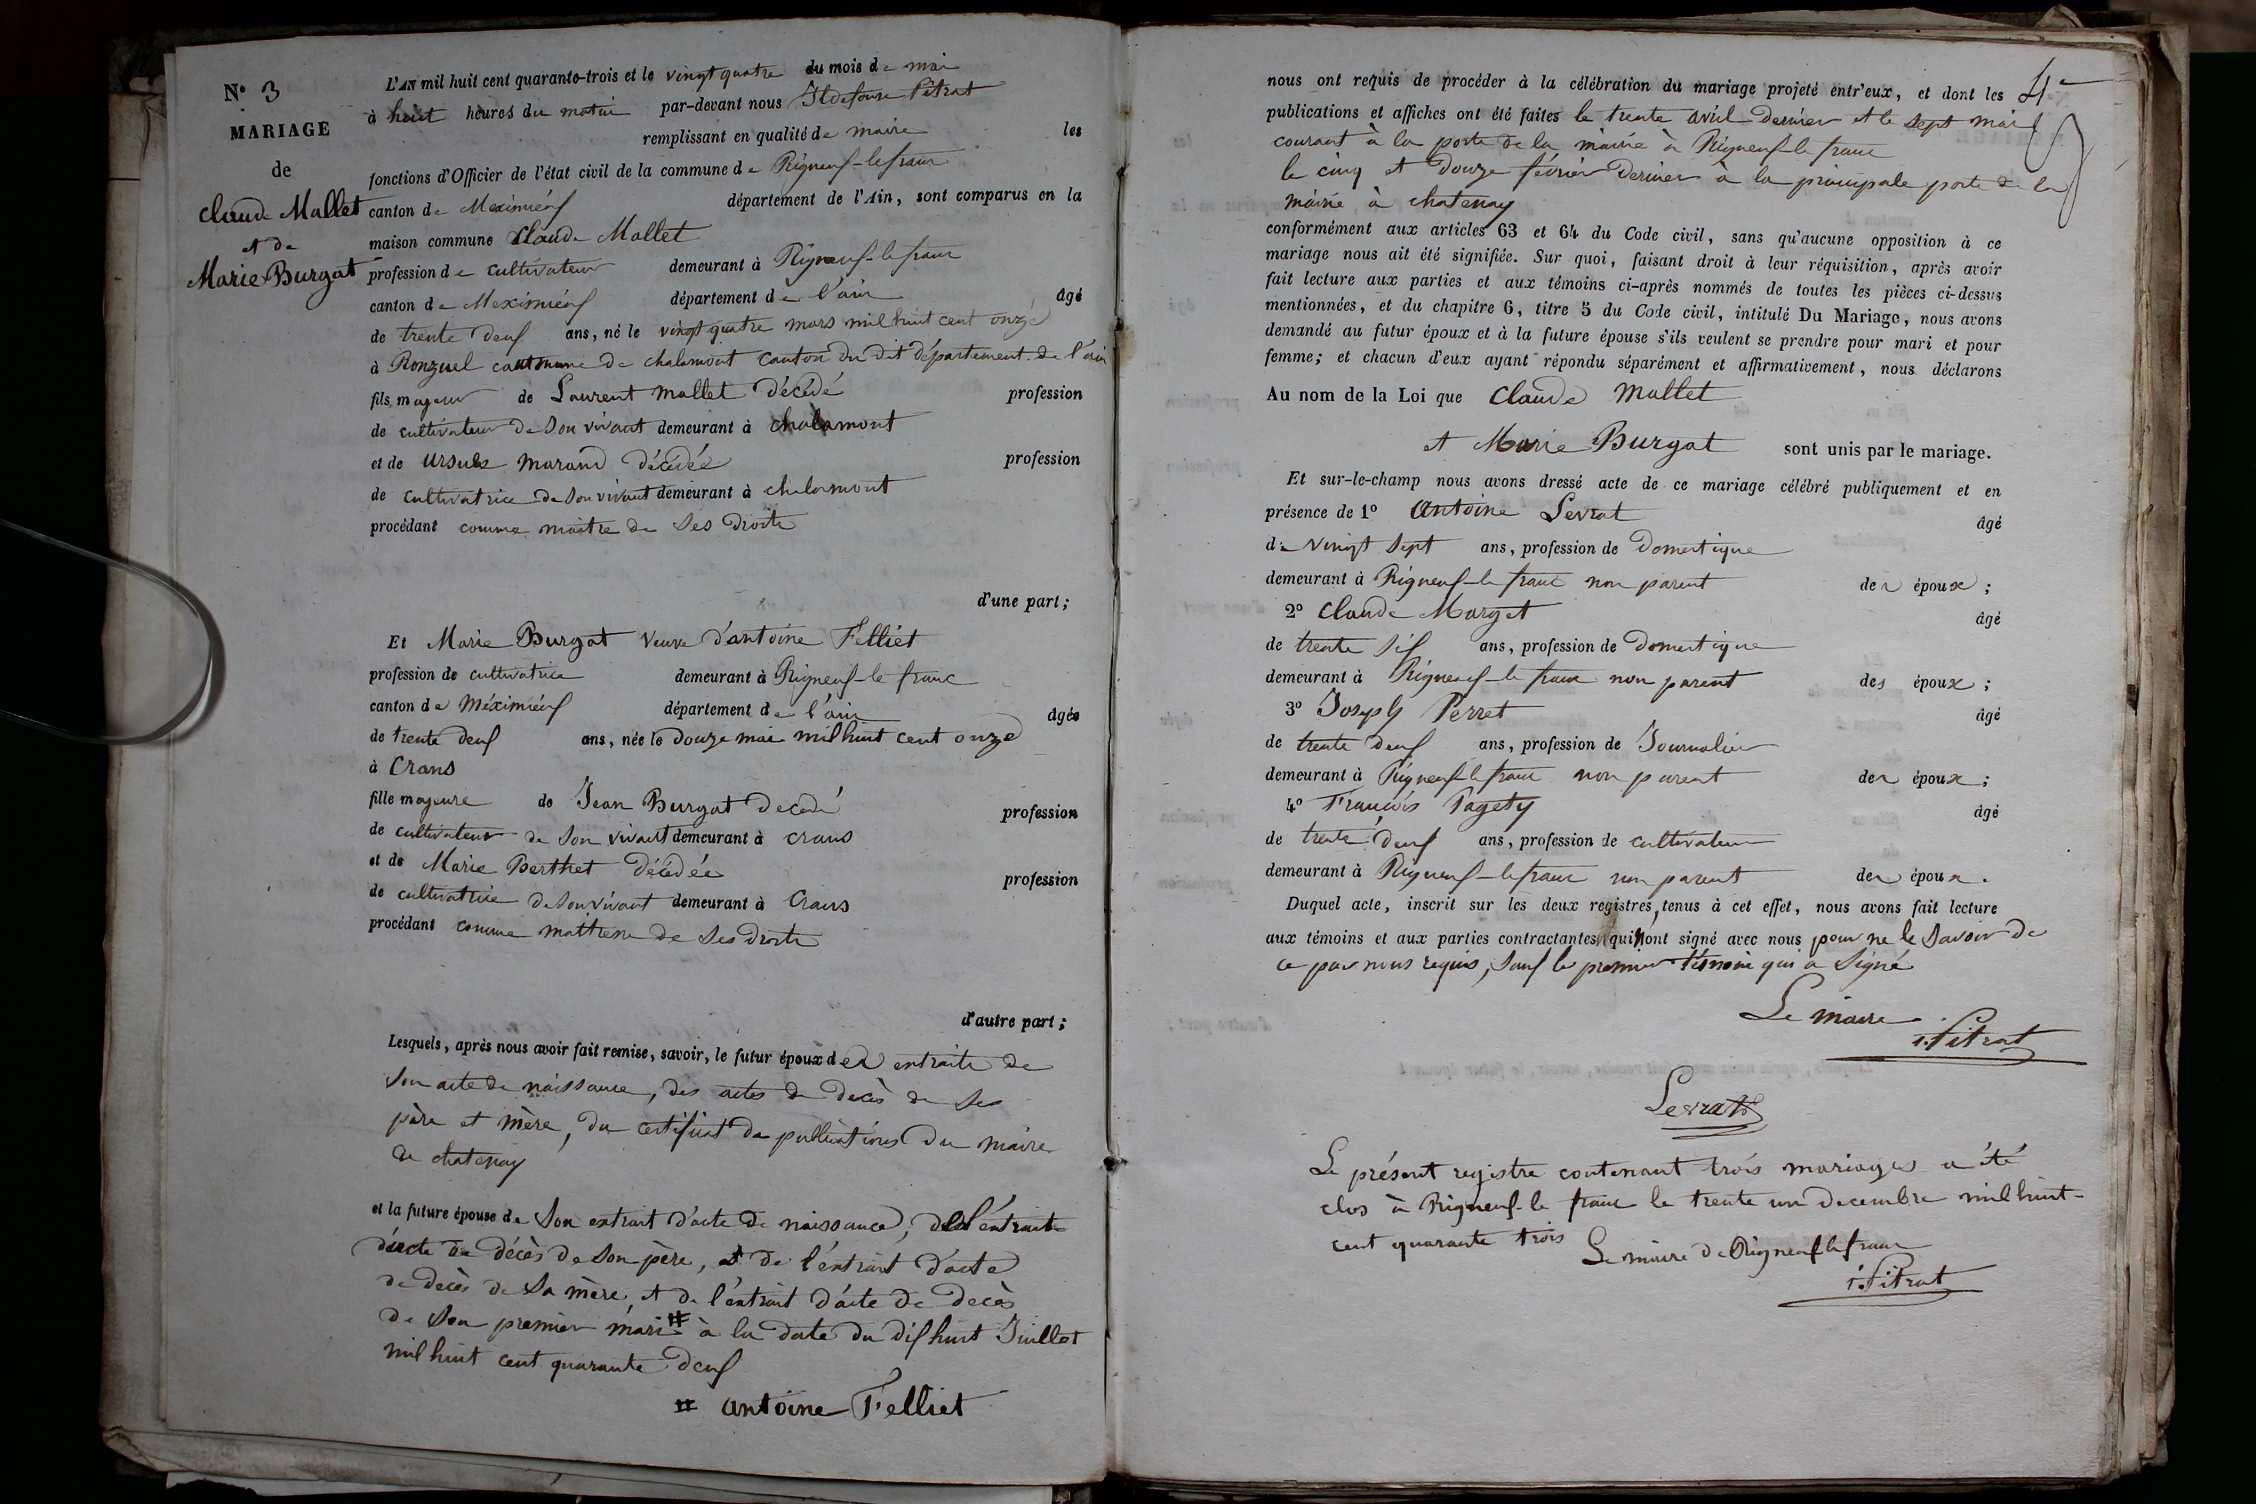 N° 3
MARIAGE
de
Claude Mallet
et de
Marie Burgat
L'AN mil huit cent quarante-trois et le vingt quatre du mois de mai
à huit heures du matin par-devant nous Ildefonse Pitrat
remplissant en qualité de maire les
fonctions d'Officier de l'état civil de la commune de Rigneuf-le franc
canton de Meximieuf département de l'Ain, sont comparus en la
maison commune Claude Mallet
profession de cultivateur demeurant à Rigneuf-le franc
canton de Meximieuf département de l'ain âgé
de trente deux ans, né le vingt quatre mars mil huit cent onze
à Ronzuel commune de chalamont canton du dit département de l'ain
fils majeur de Laurent Mallet décédé profession
de cultivateur de son vivant demeurant à chalamont
et de Ursule Marand décédée profession
de cultivatrice de son vivant demeurant à chalamont
procédant comme maître de ses droits
d'une part;
Et Marie Burgat veuve d'antoine Felliet
profession de cultivatrice demeurant à Rigneuf-le franc
canton de Méximieuf département de l'ain âgée
de trente deux ans, née le douze mai mil huit cent onze
à Crans
fille majeure de Jean Burgat decédé profession
de cultivateur de son vivant demeurant à crans
et de Marie Berthet décédée profession
de cultivatrice de son vivant demeurant à Crans
procédant comme maitresse de ses droits
d'autre part;
Lesquels, après nous avoir fait remise, savoir, le futur époux des extraits de
son acte de naissance, des actes de decès de ses
père et mère, du certificat de publications du maire
de chatenay
et la future épouse de son extrait d'acte de naissance, de l'éxtrait
d'acte de décès de son père, et de l'éxtrait d'acte
de decès de sa mère, et de l'éxtrait d'acte de decès
de son premier mari # à la date du dix huit Juillet
mil huit cent quarante deux
# antoine Felliet
4e
nous ont requis de procéder à la célébration du mariage projeté entr'eux, et dont les
publications et affiches ont été faites le trente avril dernier et le sept mai
courant à la porte de la mairie à Rigneuf-le franc
le cinq et douze février dernier à la principale porte de la
mairie à chatenay
conformément aux articles 63 et 64 du Code civil, sans qu'aucune opposition à ce
mariage nous ait été signifiée. Sur quoi, faisant droit à leur réquisition, après avoir
fait lecture aux parties et aux témoins ci-après nommés de toutes les pièces ci-dessus
mentionnées, et du chapitre 6, titre 5 du Code civil, intitulé Du Mariage, nous avons
demandé au futur époux et à la future épouse s'ils veulent se prendre pour mari et pour
femme; et chacun d'eux ayant répondu séparément et affirmativement, nous déclarons
Au nom de la Loi que Claude Mallet
et Marie Burgat sont unis par le mariage.
Et sur-le-champ nous avons dressé acte de ce mariage célébré publiquement et en
présence de 1° Antoine Levrat âgé
de vingt sept ans, profession de domestique
demeurant à Rigneuf-le franc non parent des époux;
2° Claude Marget âgé
de trente six ans, profession de domestique
demeurant à Rigneuf-le franc non parent des époux;
3° Joseph Perret âgé
de trente deux ans, profession de Journalier
demeurant à Rigneuf-le franc non parent des époux;
4° François Pagety âgé
de trente deux ans, profession de cultivateur
demeurant à Rigneuf-le franc non parent des époux.
Duquel acte, inscrit sur les deux registres, tenus à cet effet, nous avons fait lecture
aux témoins et aux parties contractantes qui n'ont signé avec nous pour ne le savoir de
ce par nous requis, sauf le premier témoin qui a signé
Le maire
i. Pitrat
Levrat
Le présent registre contenant trois mariages a été
clos à Rigneuf-le franc le trente un decembre mil huit-
cent quarante trois
Le maire de Rigneuf le franc
i. Pitrat